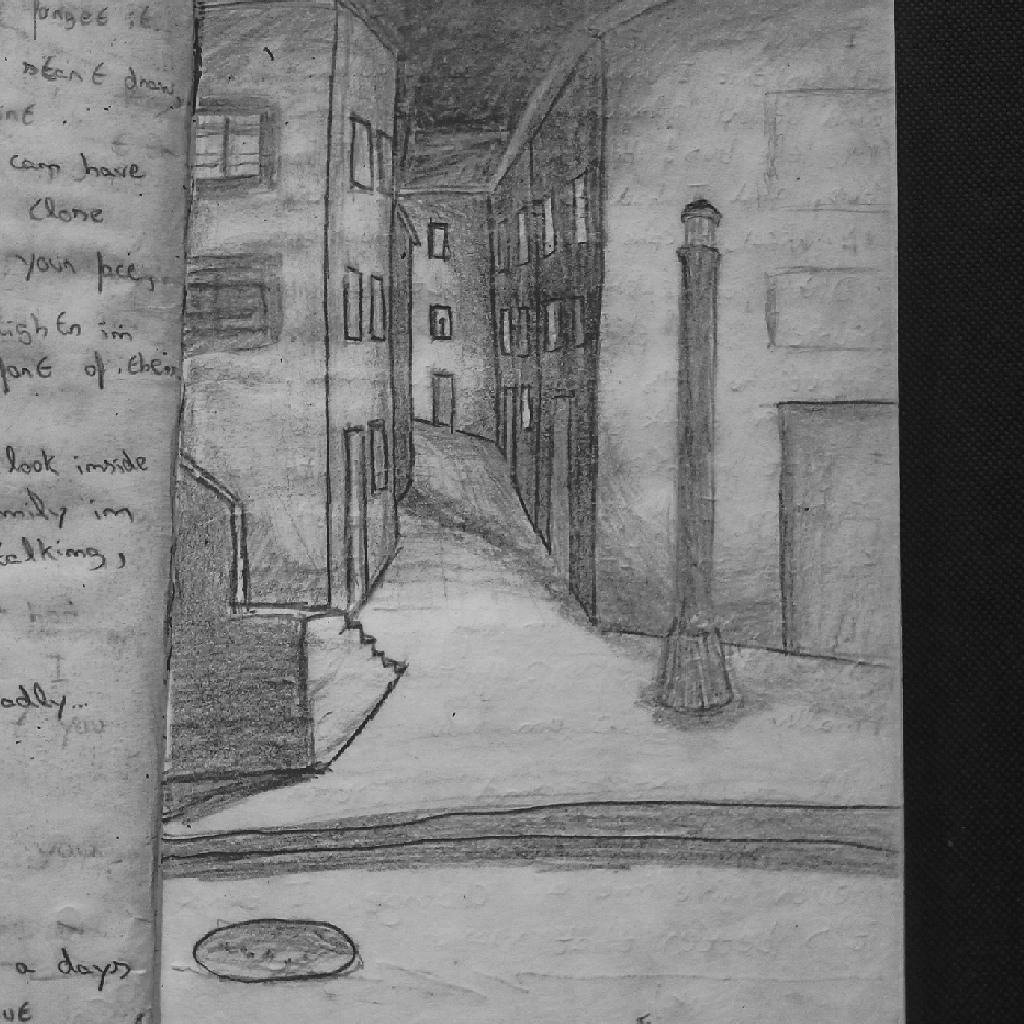 forget it
start draw,
can have
close
your pee,
lights in
font of their
look inside
family in
talking,
I
adly...
you
your
a days